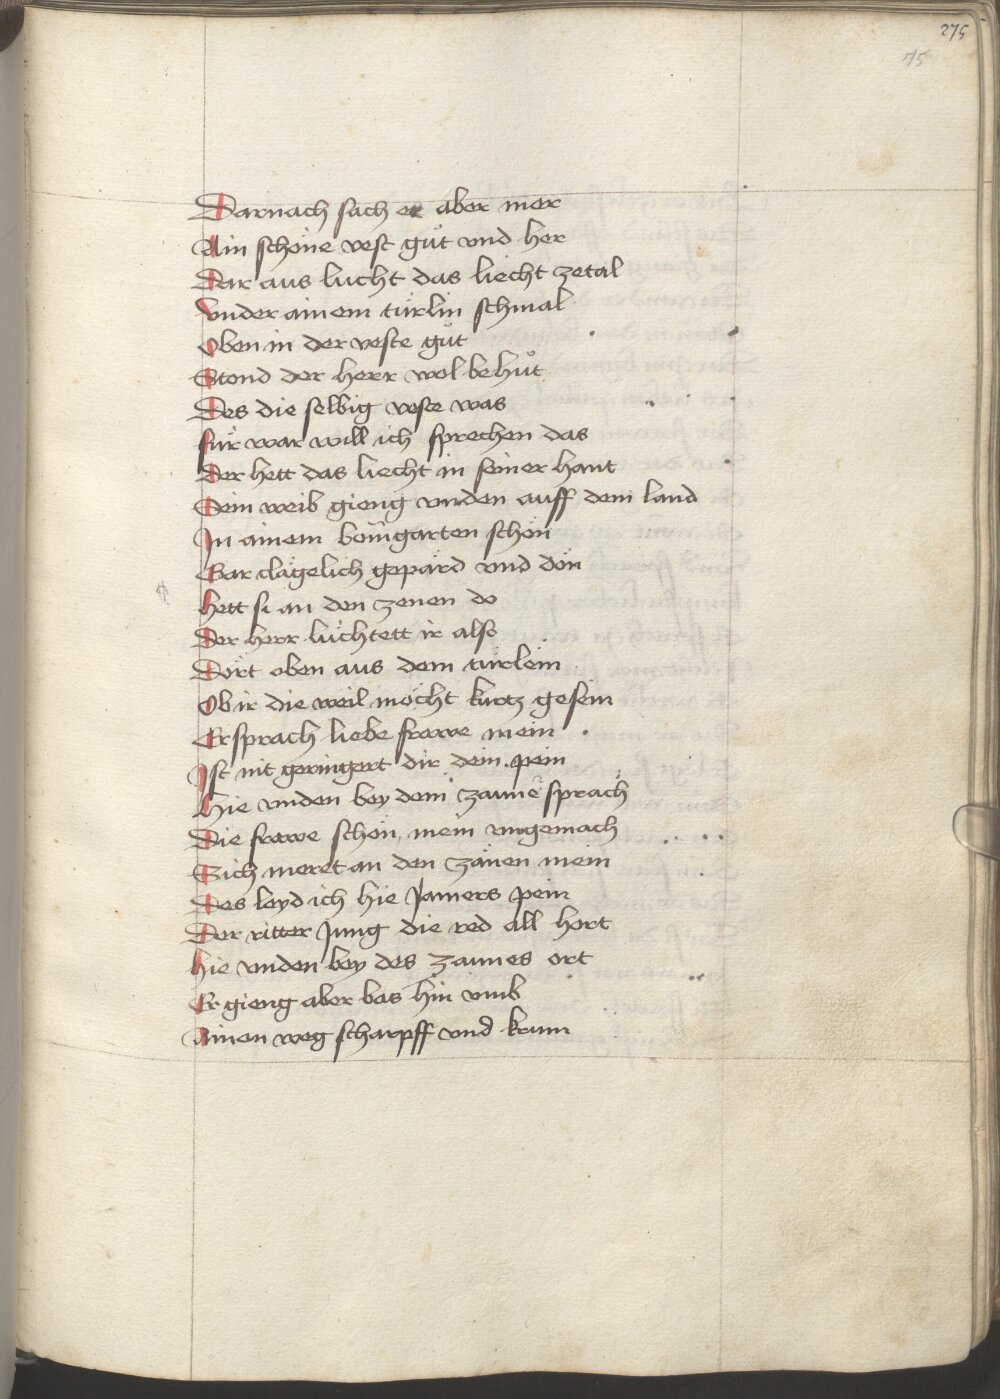 275
75
Darnach sach er aber mer
Ain schöne vest gůt vnd her
Dar aus lucht das liecht zetal
Vnder ainem türlin schmal
Oben in der veste gůt
Stond der herr wol behůt
Des die selbig veste was
für war will ich sprechen das
Der hett das liecht in seiner hant
Sein weib gieng vnden auff dem land
In ainem bömgarten schön
Gar clägelich gepärd vnd dön
hett si an den zenen do
Der herr lüchtett ir also
Dört oben aus dem türlein
Ob ir die weil möcht kurtz gesein
Er sprach liebe frowe mein
Ist nit geringert dir dein pein
Hie vnden bey dem zaune sprach
Die frowe schön mein vngemach
Sich meret an den zänen mein
Des leyd ich hie Jamers pein
Der ritter Jung die red all hort
hie vnden bey des zaunes ort
Er gieng aber bas hin vmb
Ainen weg scharpff vnd krum